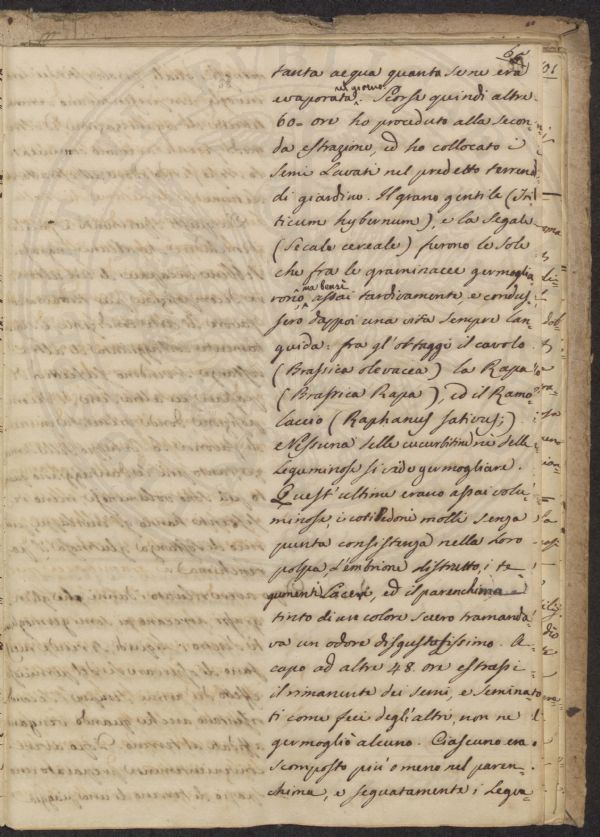 60
tanta acqua quanta se ne era
nel giorno
evaporata. Scorse quindi altre
60= ore ho proceduto alla secon=
da estrazione, ed ho collocato i
semi lavati nel predetto terreno
di giardino. Il grano gentile (Tri
ticum hybernum), e la segale
(Secale cereale) furono le sole
che fra le graminacee germoglia
ma bensì
rono, assai tardivamente e condus=
sero dappoi una vita sempre lan=
guida: fra gl'ottaggi il cavolo
(Brassica olevacea) la Rapa
(Brassica Rapa), ed il Ramo
laccio (Raphanus sativus;)
e Nissuna delle cucurbitine nè delle
leguminose si vide germogliare.
Quest'ultime erano assai volu
minose, i cotiledoni molli senza
punta consistenza nella loro
polpa, l'embrione distrutto, i te
gumenti laceri, ed il parenchima
tinto di un colore scero tramanda=
va un odore disgustosissimo. A
capo ad altre 48. ore estrassi
il rimanente dei semi, e semina
ti come feci degl'altri, non ne
germogliò alcuno. Ciascuno era
scomposto più o meno nel paren=
chima, e seguatamente i legu=